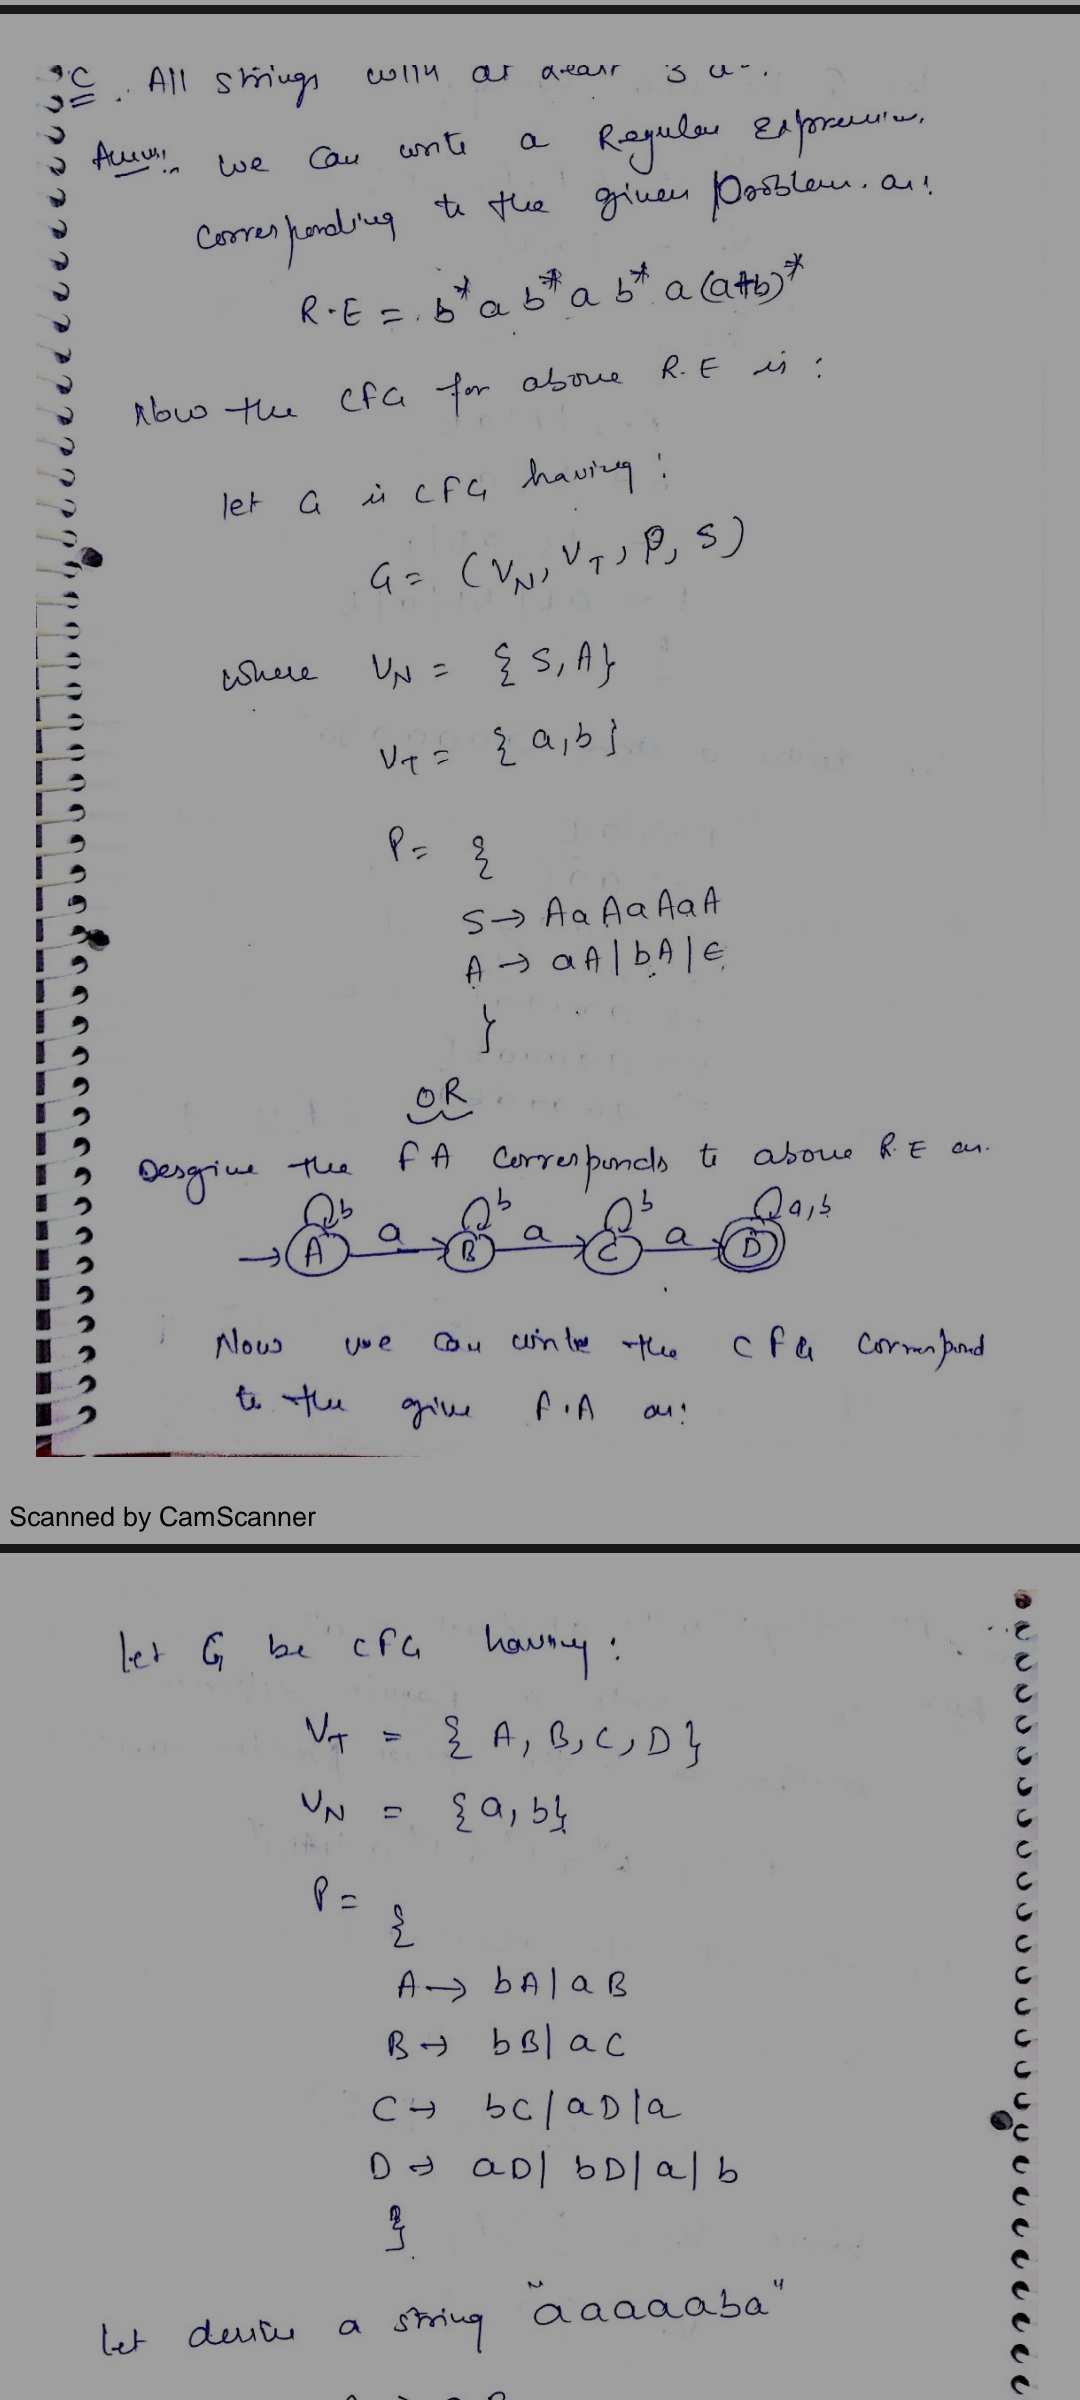 C. All strings with at least 3 a
Answer:. we can write a Regular Expression.
Corresponding to the given problem. as:
R.E = b* a b* a b* a (a+b)*
Now the CFG for above R.E is :
let G is CFG having :
G = (VN, VT, P, S)
where VN = { S, A}
VT = { a, b }
P = {
S → AaAaAaA
A → aA | bA | ϵ
}
OR
Desgine the FA Corresponds to above R.E as.
b b b a,b
→ A a B a C a D
Now we can write the CFG correspond
to the give F.A as:
Scanned by CamScanner
let G be CFG having :
VT = { A, B, C, D }
VN = { a, b }
P =
{
A → bA | aB
B → bB | aC
C → bC | aD | a
D → aD | bD | a | b
}
let derive a string "aaaaaba"